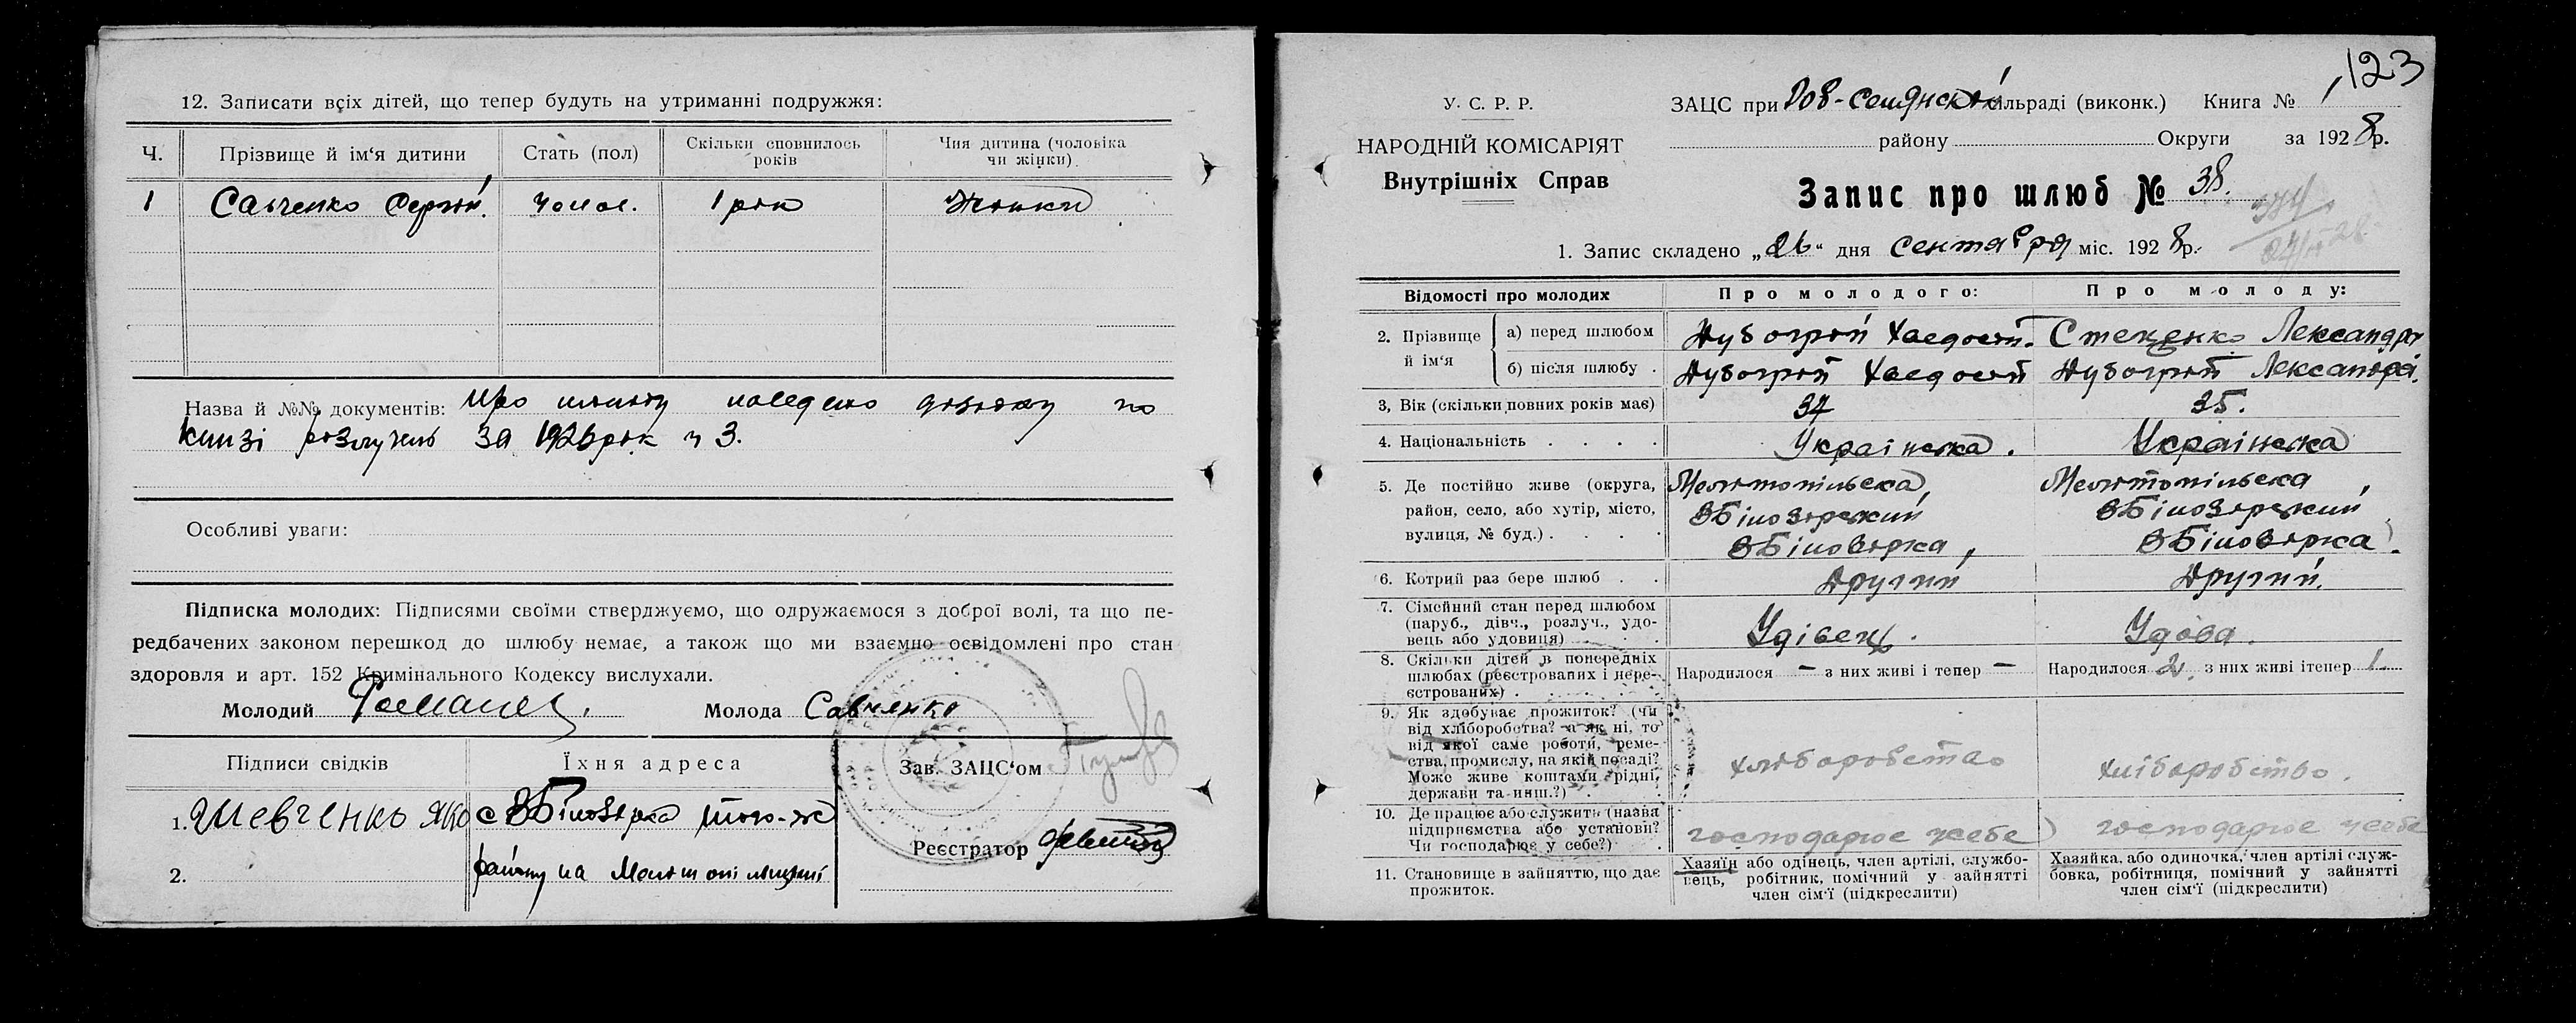 12. Записати всіх дітей, що тепер будуть на утриманні подружжя:
Ч. Прізвище й ім'я дитини Стать (пол) Скільки сповнилось років Чия дитина (чоловіка чи жінки)
1 Савченко Сергій. чолов. 1 рік Жінки
Назва й №№ документів: Про по
книзі розлучень за 1926 рік ч 3.
Особливі уваги:
Підписка молодих: Підписями своїми стверджуємо, що одружаємося з доброї волі, та що пе-
редбачених законом перешкод до шлюбу немає, а також що ми взаємно освідомлені про стан
здоровля и арт. 152 Кримінального Кодексу вислухали.
Молодий Молода Савченко
Підписи свідків Їхня адреса Зав. ЗАЦС'ом
1. Шевченко Яко с ВБілозірка того-ж
Реєстратор
2. району на
123
У. С. Р. Р.
НАРОДНІЙ КОМІСАРІЯТ
Внутрішніх Справ
ЗАЦС при сільраді (виконк.) Книга №
району Округи за 1928 р.
Запис про шлюб № 38.
1. Запис складено „26" дня сентября міс. 1928 р.
Відомості про молодих Про молодого: Про молоду:
2. Прізвище й ім'я
а) перед шлюбом Дубогрій Стеценко Лександра
б) після шлюбу . Дубогрій Дубогрій Лександра.
3, Вік (скільки повних років має) 37 35.
4. Національність . . . . Українська. Українська
5. Де постійно живе (округа, район, село, або хутір, місто, вулиця, № буд.) . . . .
Мелітопільска, Мелітопільска,
ВБілозірский ВБілозірский
ВБілозірка, ВБілозірка.
6. Котрий раз бере шлюб . . Другий Другий.
7. Сімейний стан перед шлюбом (паруб., дівч., розлуч., удовець або удовиця) Удівець. Удова.
8. Скільки дітей в попередніх шлюбах (реєстрованих і нереєстрованих) .
Народилося — з них живі і тепер — Народилося 2. з них живі ітепер 1.
9. Як здобуває прожиток? (чи від хліборобства? а як ні, то від якої саме роботи, ремества, промислу, на якій посаді? Може живе коштами рідні, держави та инш.?)
хліборобство хліборобство.
10. Де працює або служить (назва підприємства або установи? Чи господарює у себе?)
господарює у себе господарює у себе
11. Становище в зайняттю, що дає прожиток.
Хазяїн або одінець, член артілі, службовець, робітник, помічний у зайнятті член сім'ї (підкреслити)
Хазяйка, або одиночка, член артілі службовка, робітниця, помічний у зайнятті член сім'ї (підкреслити)